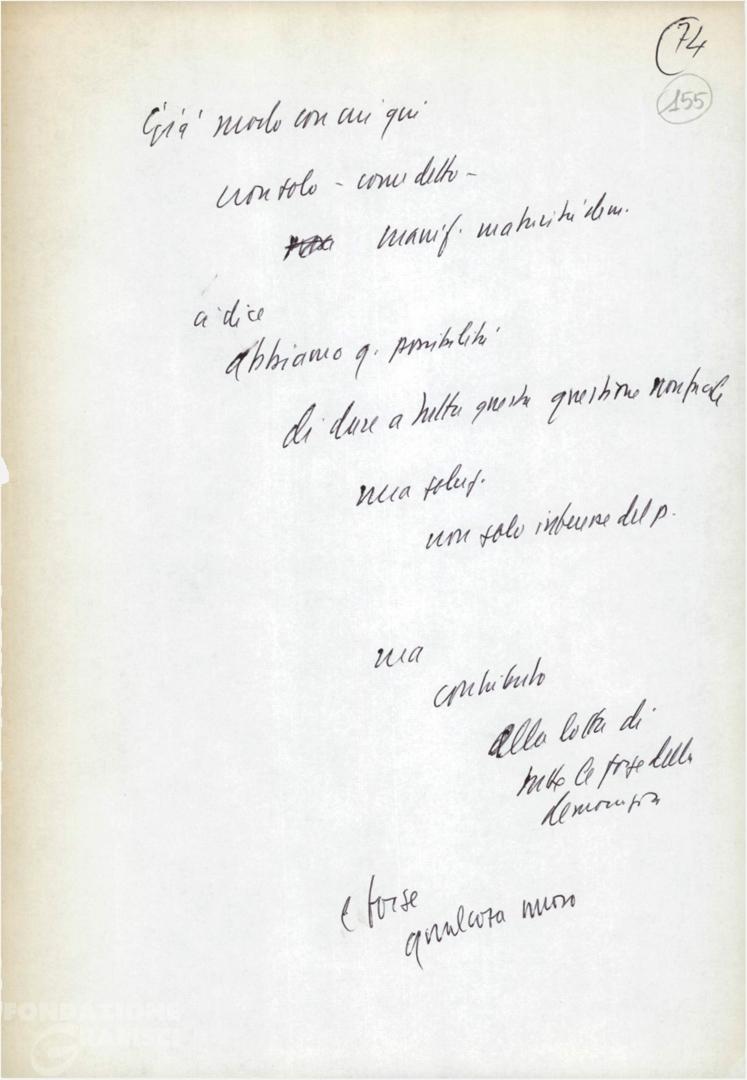 74
155
È già modo con cui qui
non solo - come detto -
manif. maturità dem.
ci dice
abbiamo q. possibilità
di dare a tutta questa questione
una soluz.
non solo interesse del p.
ma
contributo
alla lotta di
tutte le forze della
democrazia
e forse
qualcosa nuovo
FONDAZIONE
GRAMSCI